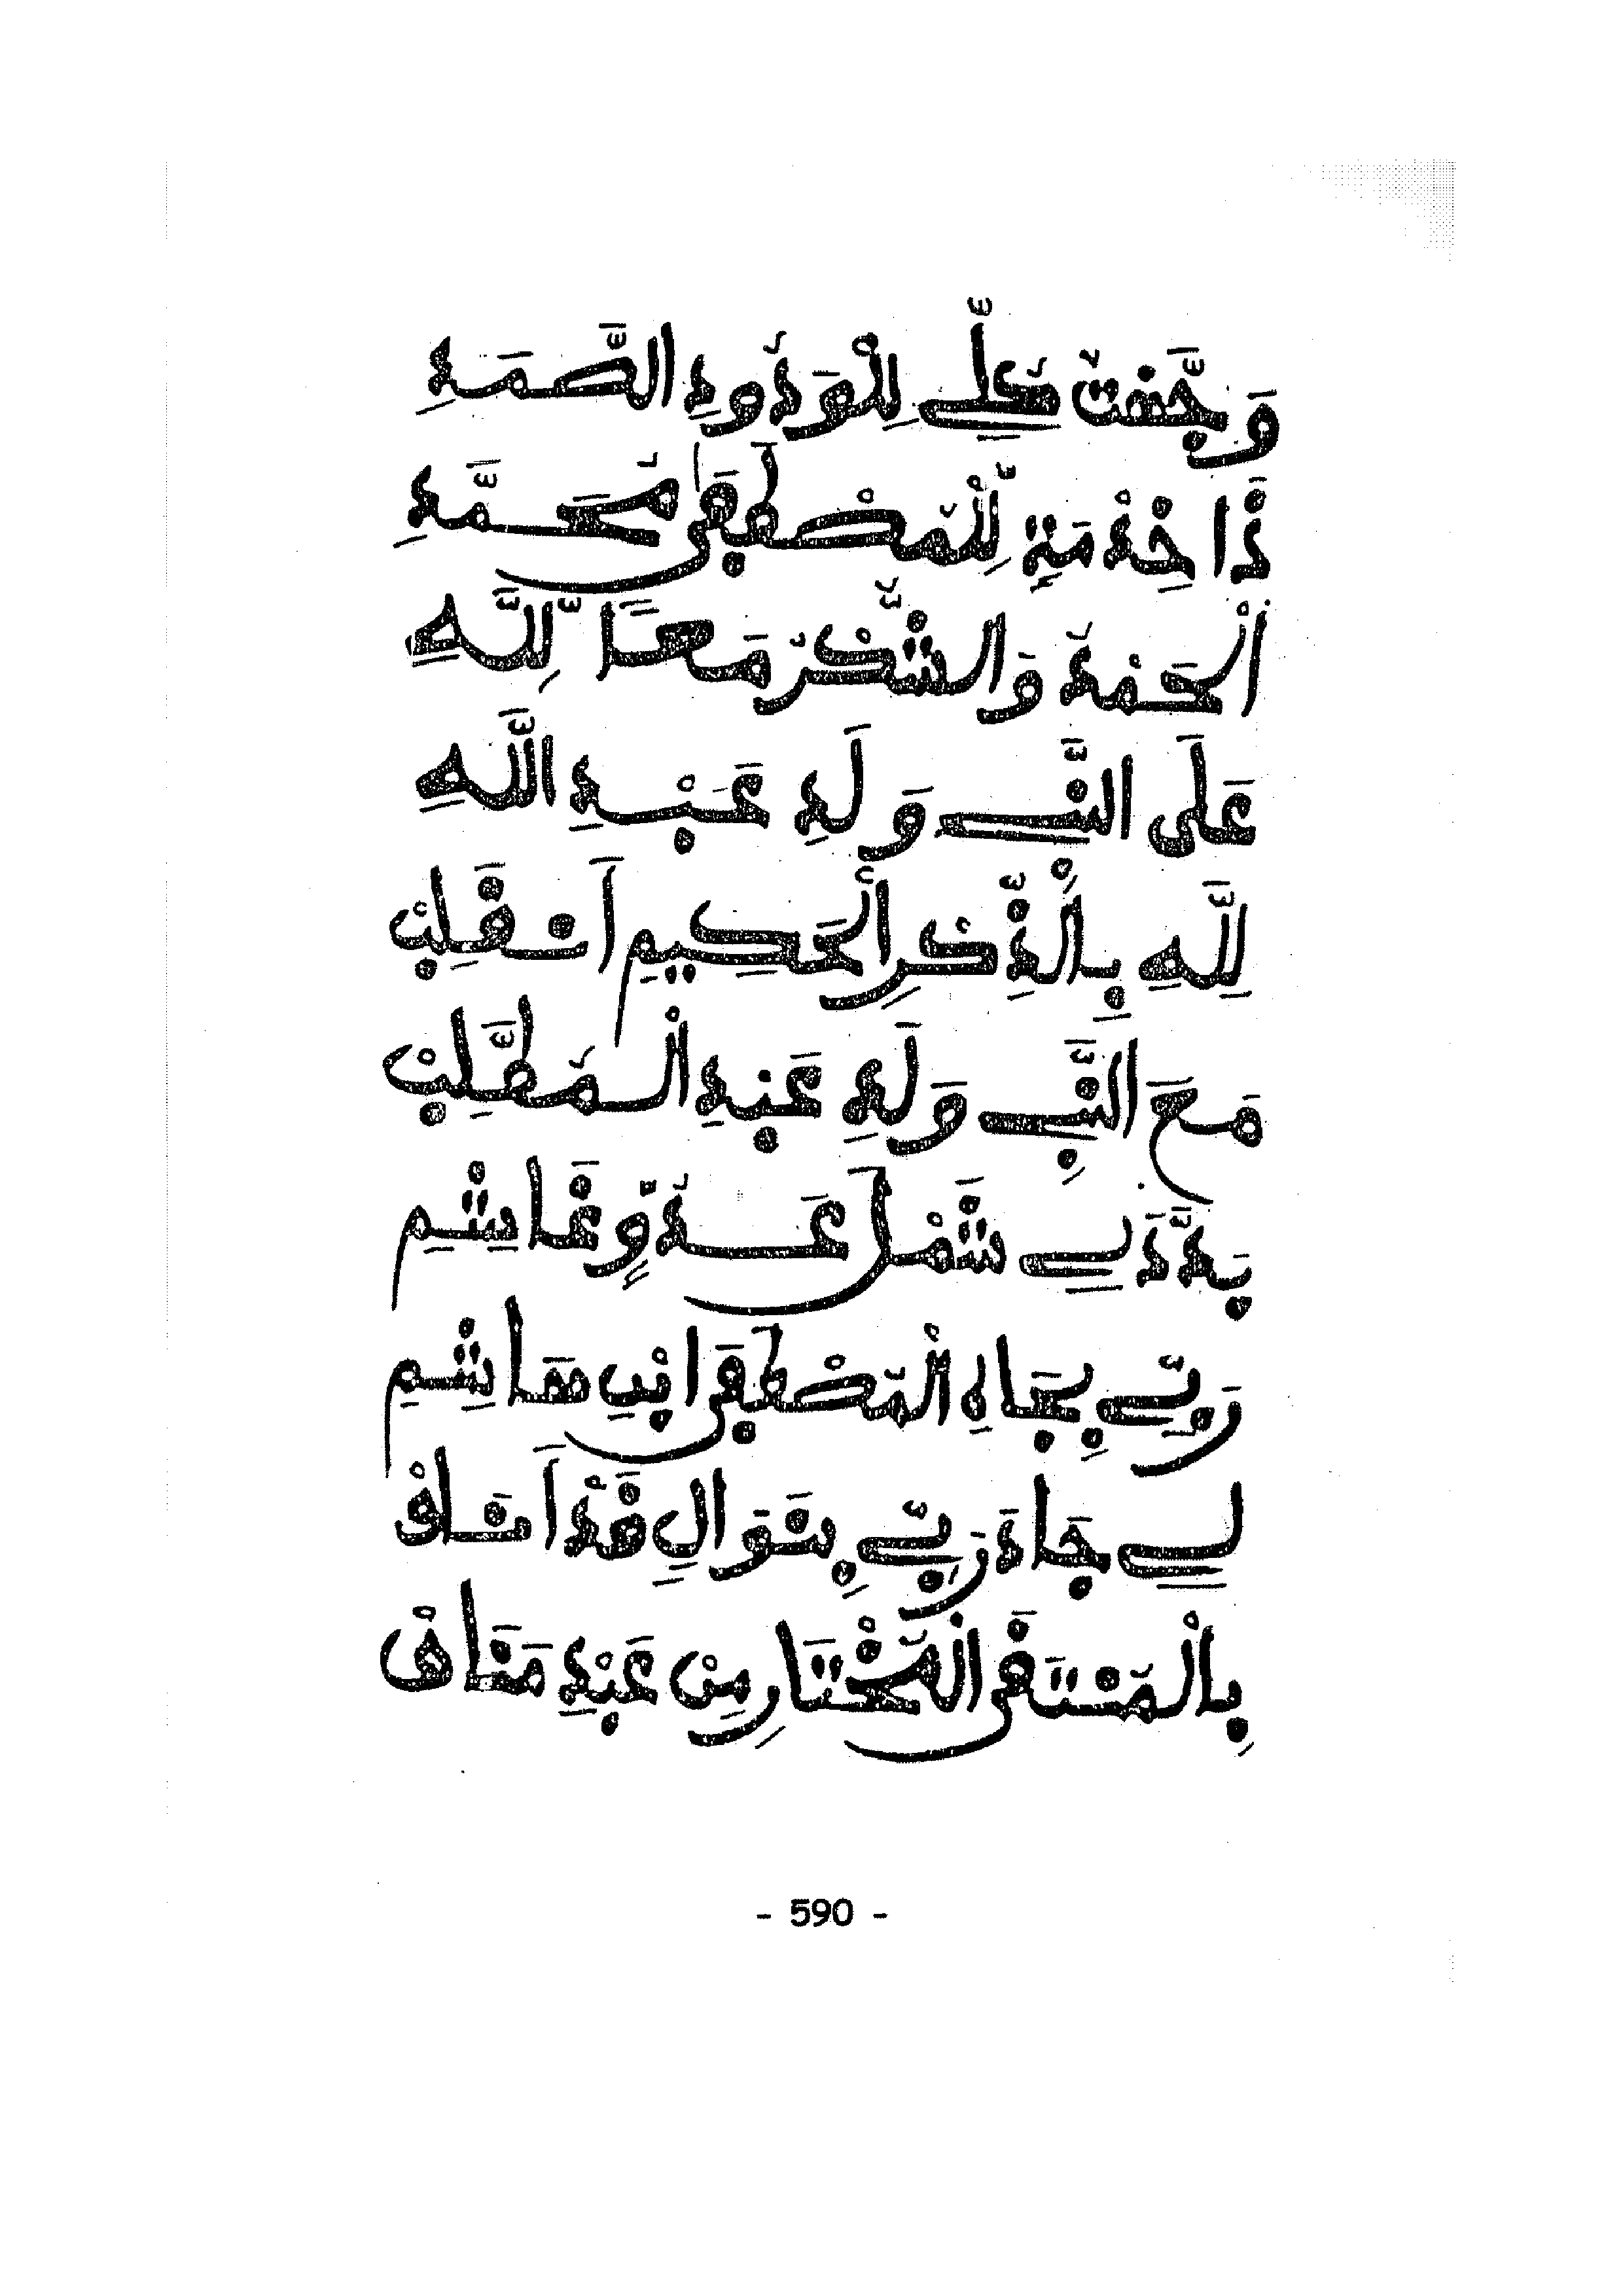 وَجَّهْتُ كُلِّي لِلْوَدُودِ الصَّمَدِ
ذَا خِدْمَةٍ لِّلْمُصْطَفَى مُحَمَّدِ
اَلْحَمْدُ وَالشُّكْرُ مَعًا لِلَّهِ
عَلَى النَّبِي وَلَدِ عَبْدِ اللَّهِ
لِلَّهِ بِالذِّكْرِ الْحَكِيمِ أَنْقَلِبْ
مَعَ النَّبِي وَلَدِ عَبْدِ الْمُطَّلِبْ
بَدَّدَ لِي شَمْلَ عَدُوٍّ غَاشِمِ
رَبِّي بِجَاهِ الْمُصْطَفَى ابْنِ هَاشِمِ
لِي جَادَ رَبِّي بِنَوَالٍ قَدْ أَنَافْ
بِالْمُنْتَقَى الْمُخْتَارِ مِنْ عَبْدِ مَنَافْ
- 590 -